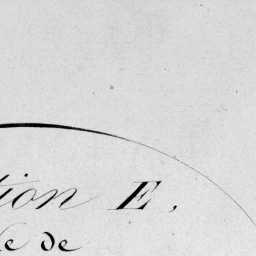 tion E,
le de